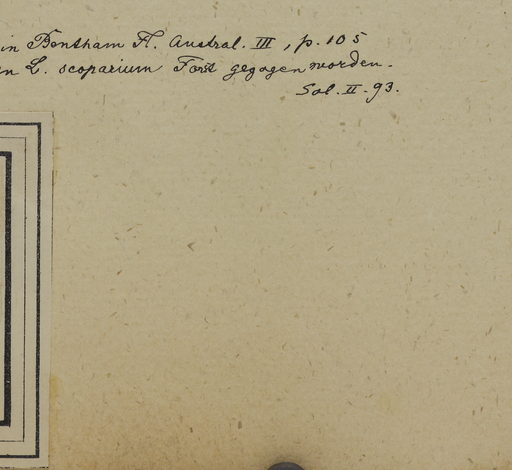 in Bentham Fl. Austral. III, p. 105
n L. scoparium Forst gezogen worden.
Sol. II. 93.